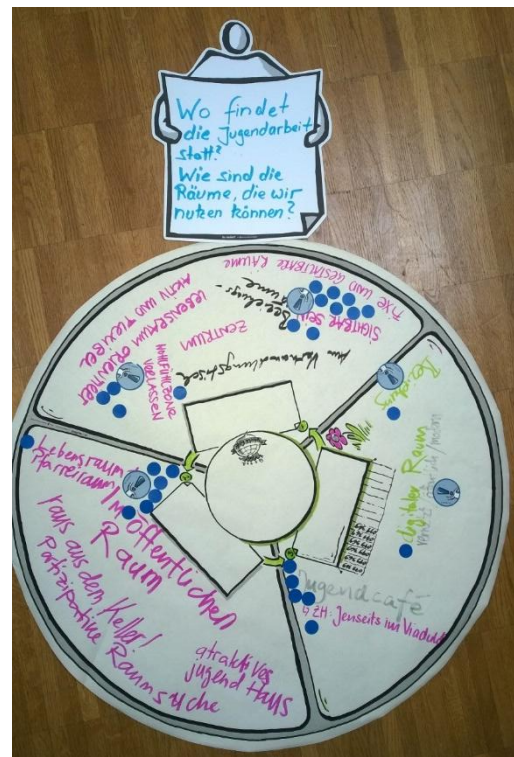 Wo findet
die Jugendarbeit
statt?
Wie sind die
Räume, die wir
nutzen können?
FIXE UND GESTALTBARE RÄUME
Beziehungs-
räume
SICHTBAR SEIN
ZENTRUM
am Verhandlungstisch
AKTIV UND FLEXIBEL
LEBENSRAUM ORIENTIERT
WOHLFÜHLZONE
VERLASSEN
Beziehung
digitaler Raum
Jugendcafé
↳ ZH: Jenseits im Viadukt
Lebensraum +
Pfarreiraum
IM öffentlichen
Raum
raus aus dem Keller!
Partizipative
Raumsuche
atraktives
jugend Haus